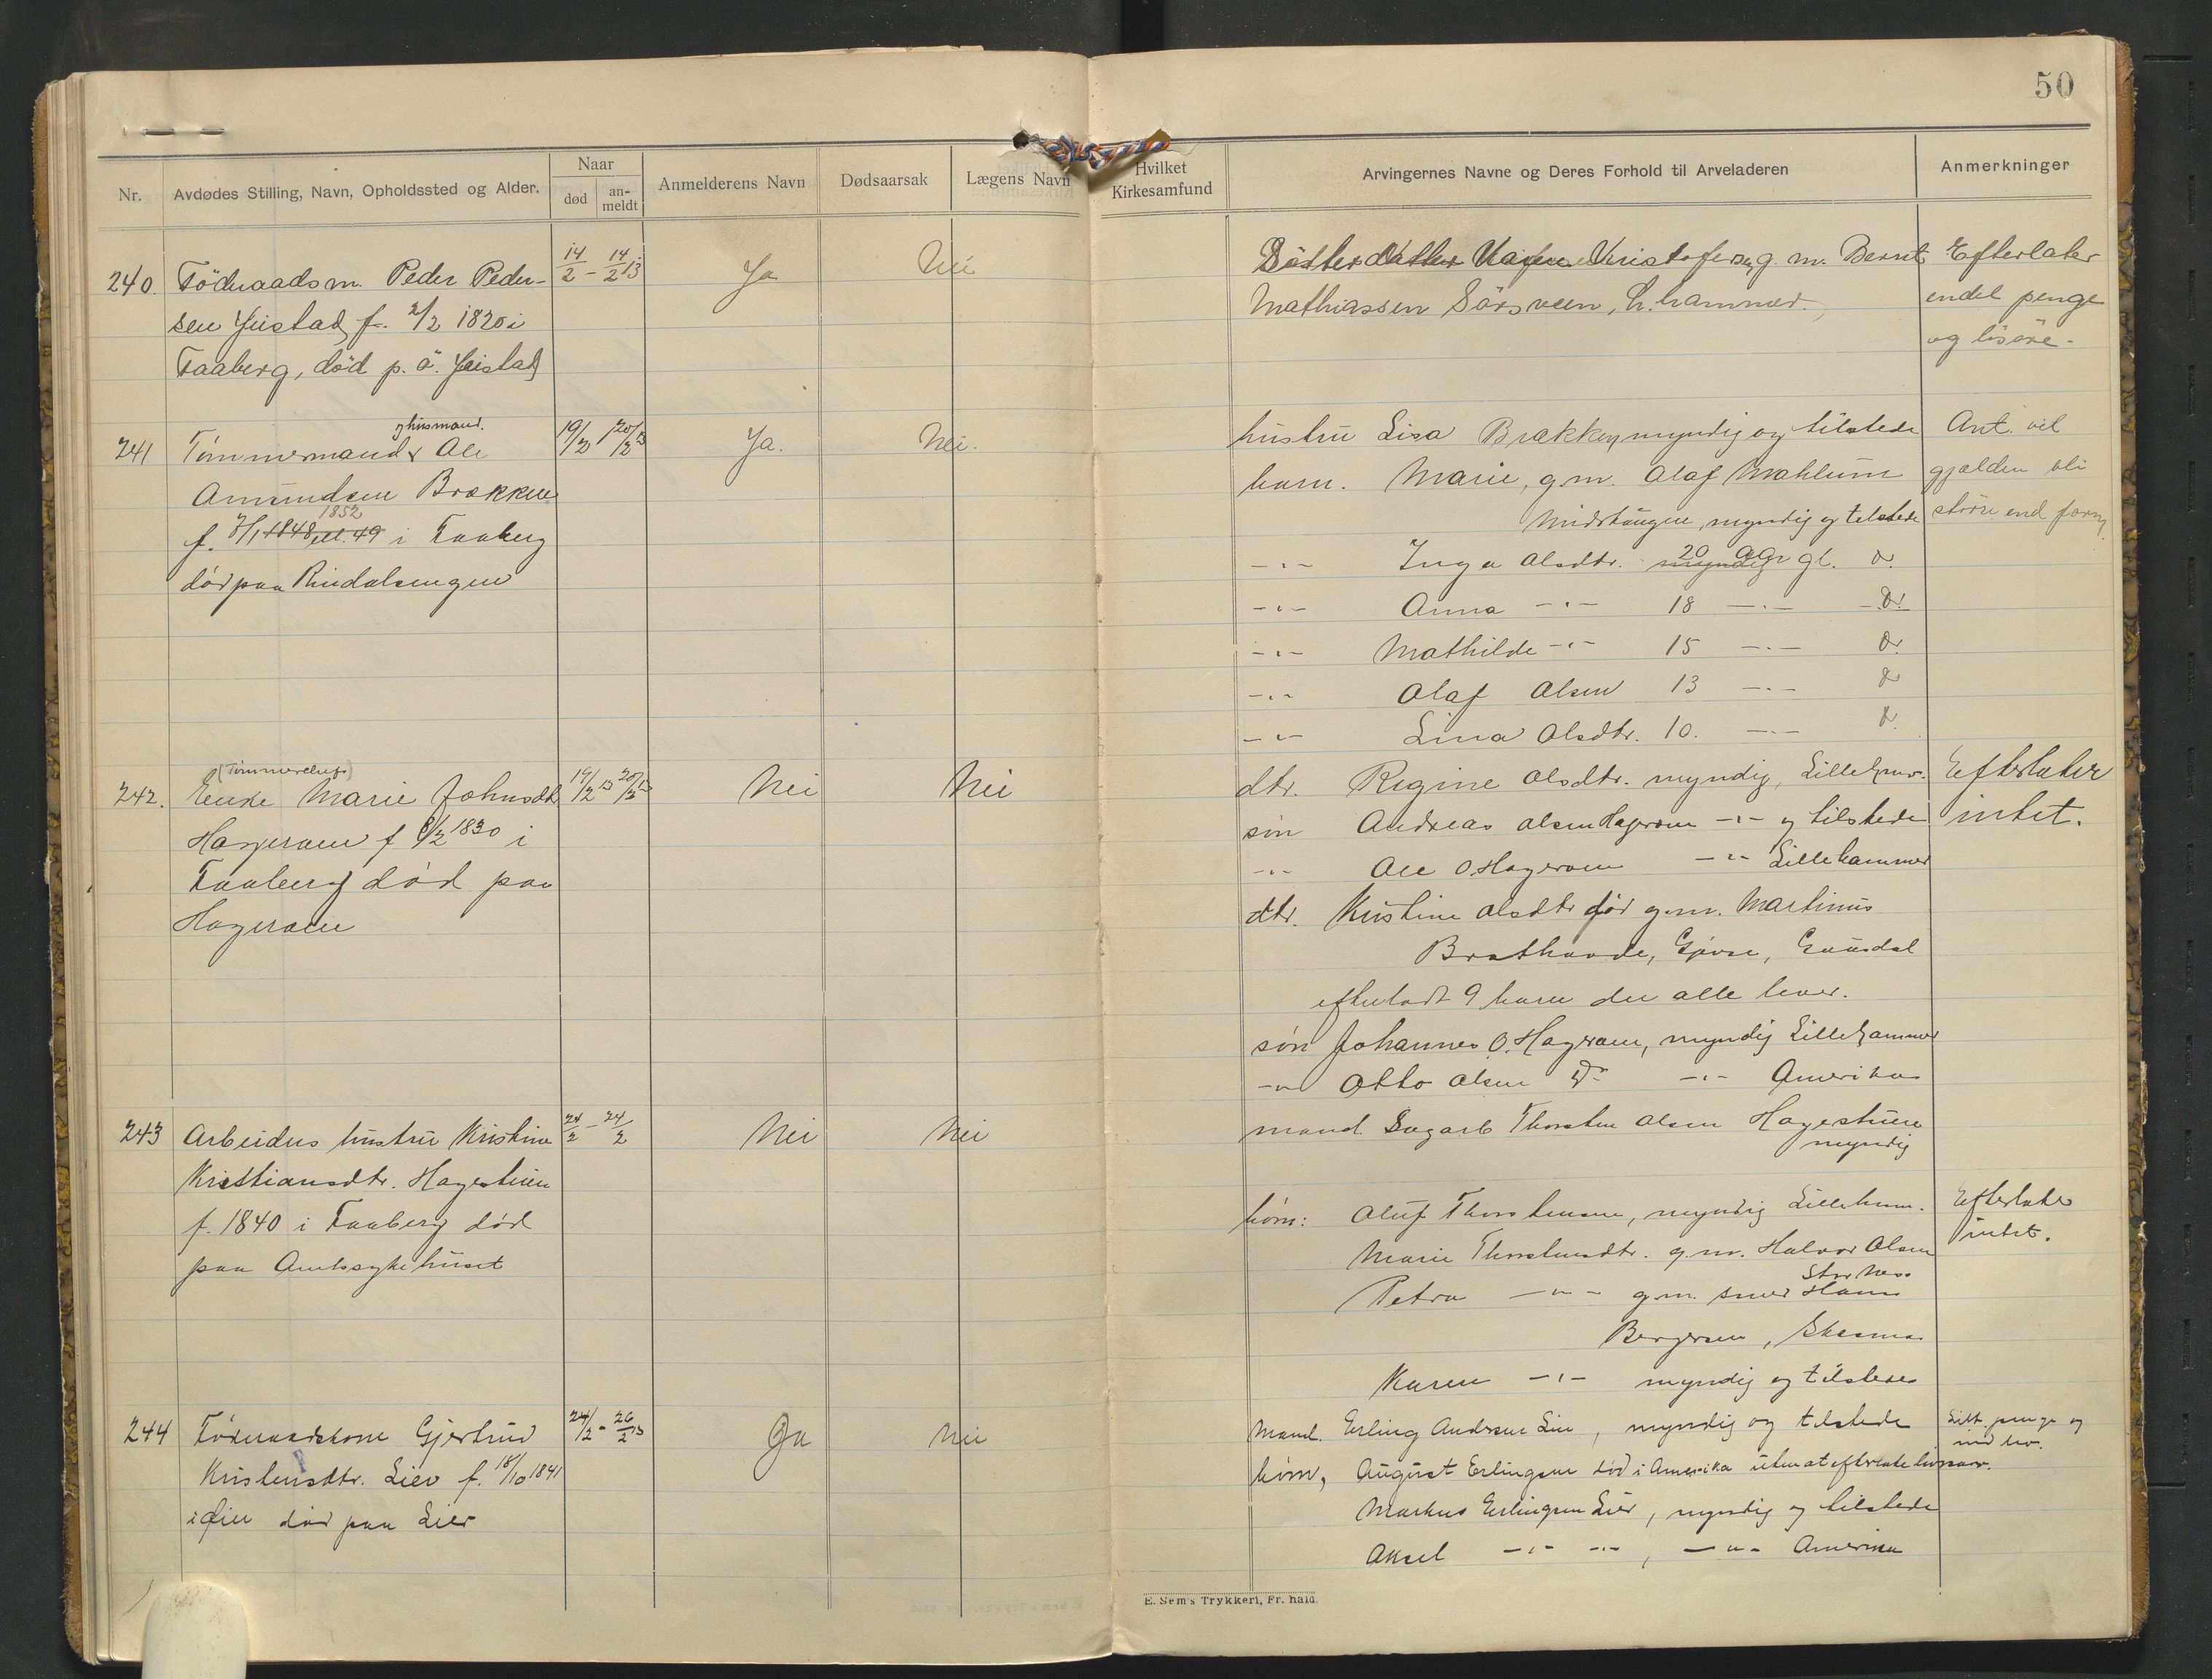 50
Nr.
Avdødes Stilling, Navn, Opholdssted og Alder.
Naar
død
an-
meldt
Anmelderens Navn
Dødsaarsak
Lægens Navn
Hvilket
Kirkesamfund
Arvingernes Navne og Deres Forhold til Arveladeren
Anmerkninger
240. Föderaadsm. Peder Peder-
sen Jeistad, f. 2/2 1820 i
Faaberg, död p. ö. Jeistad
14/2 - 14/2 13
Ja
Nei
Dötterdatter Karen Kristofersen, g. m. Bernt
Mathiassen Sörsveen, L.hammer.
Efterlater
endel penge
og lösöre.
241 Tømmermand & Ole
og husmand.
Amundsen Brækken
1852
f. 7/1 1848 ell. 49 i Faaberg
død paa Rindalsengen
19/2 20/2 13
Ja.
Nei.
hustru Lisa Brækken, myndig og tilstede
barn. Marie, g.m. Olaf Mæhlum
Midthaugen, myndig og tilstede
-"- Inga Olsdtr. myndig 20 aar gl. do.
-"- Anna -"- 18 -"- do.
-"- Mathilde -"- 15 -"- do.
-"- Olaf Olsen 13 -"- do
-"- Lina Olsdtr. 10. -"- do.
Ant. vil
gjælden bli
større end form.
242. Enke Marie Johnsdtr
Hageraen f 8/2 1830 i
Faaberg død paa
Hageraen
19/2 13 20/2 13
Nei
Nei
dtr. Regine Olsdtr. myndig, Lillehmr.
søn Andreas Olsen Hageraen -"- og tilstede
-"- Ole O. Hageraen -"- Lillehammer
dtr. Kristine Olsdtr død g.m. Martinus
Brathaode, Gjøse, Gausdal
efterlodt 9 barn der alle lever.
søn Johannes O. Hageraen, myndig Lillehammer
-"- Otto Olsen do -"- Amerika
Efterlater
intet.
243 Arbeiders hustru Kristine
Kristiansdtr. Hagestuen
f. 1840 i Faaberg død
paa Amtssykehuset
24/2 - 24/2
Nei
Nei
mand. Dagarb Thorsten Olsen Hagestuen
myndig
børn: Oluf Thorstensen, myndig Lillehm.
Marie Thorstensdtr. g.m. Halvor Olsen
Petra -"- g.m. smed Hans
Bergersen,
Karen -"- myndig og tilstede
Efterlater
intet.
244 Føderaadskone Gjertrud
Kristensdtr. Lier f. 18/10 1841
i Øier død paa Lier
24/2 - 26/2 13
Ja
Nei
Mand. Erling Andersen Lier, myndig og tilstede
børn, August Erlingsen død i Amerika uten at efterlate livsarv.
Markus Erlingsen Lier, myndig og tilstede
Aksel -"- -"-, -"- Amerika
Litt penge og
indbo.
E. Sem's Trykkeri, Fr. hald.